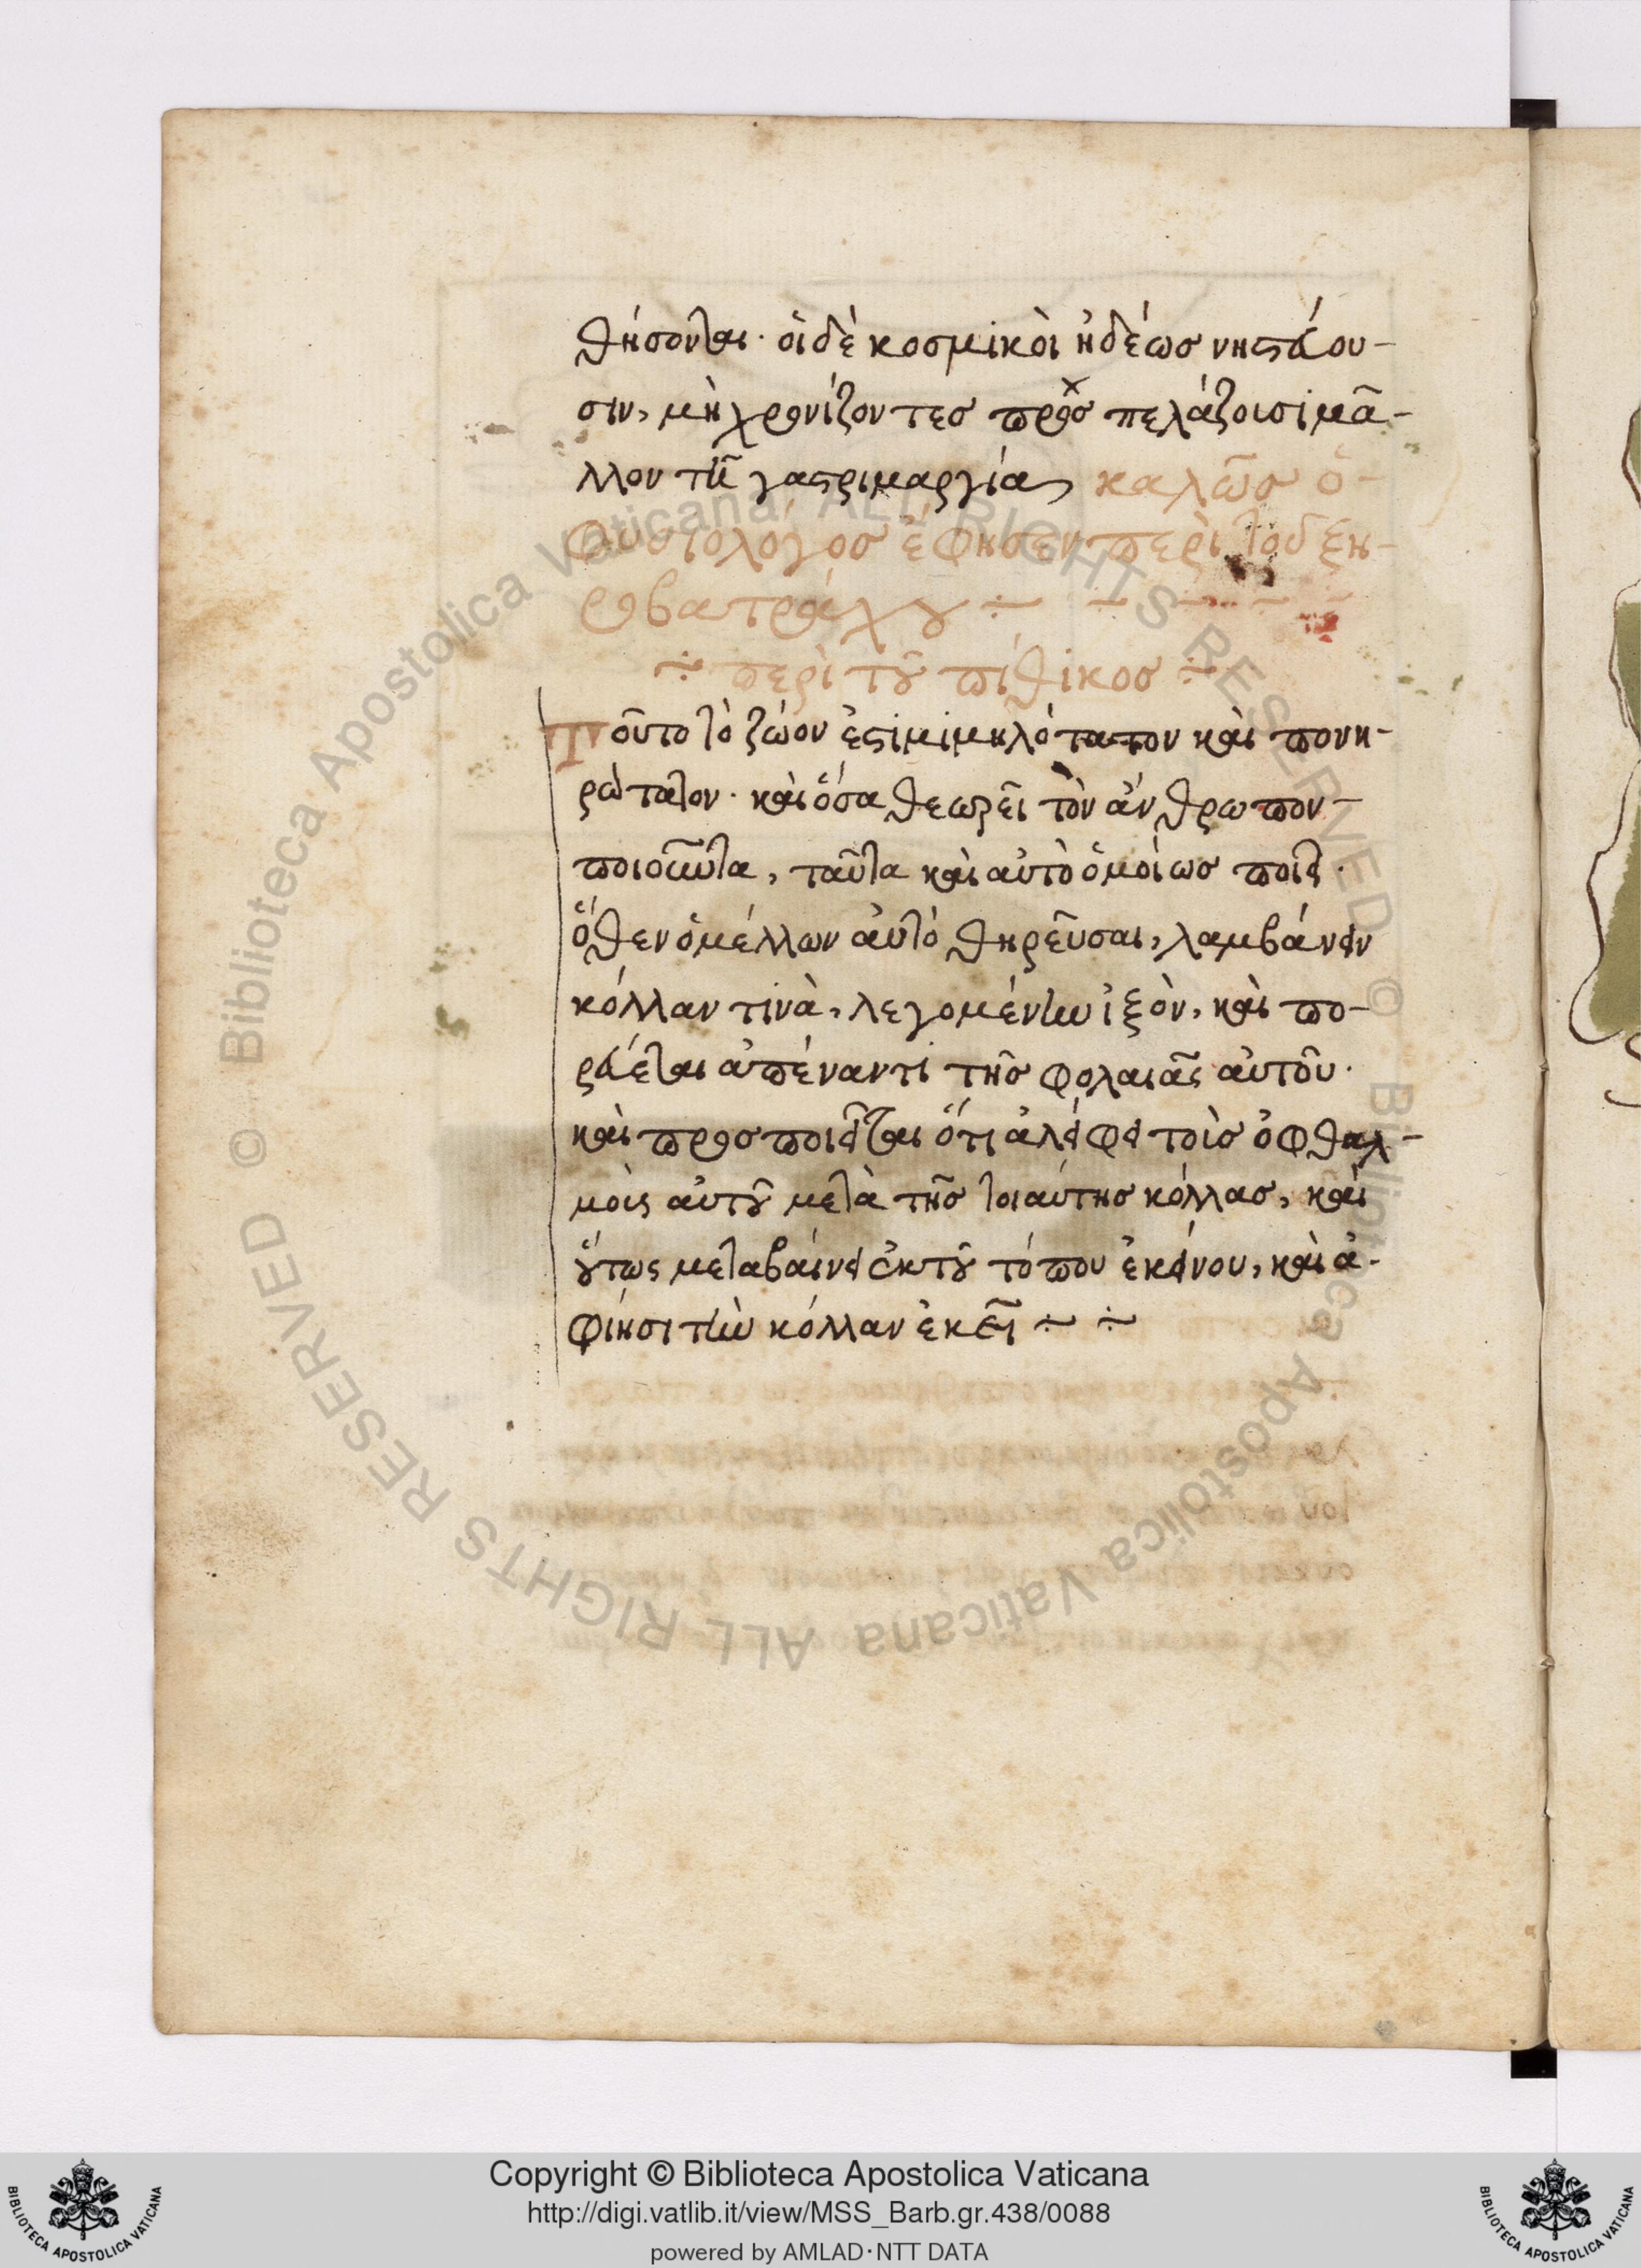 θήσονται· οἱ δὲ κοσμικοὶ ἡδέωσ νηστεύου-
σιν, μὴ χρονίζοντεσ προσ πελάζοισι μᾶ-
λλον τῆ γαστριμαργία, καλῶσ ὁ-
φυσιολόγοσ ἔφησεν περὶ τοῦ ξη-
ροβατράχου ÷ ÷ ÷ ÷ ÷
÷ περὶ τοῦ πίθικοσ ÷
Τοῦτο τὸ ζώον ἐστι μιμηλότατον καὶ πονη-
ρώτατον· καὶ ὅσα θεωρεῖ τὸν ἄνθρωπον-
ποιοῦντα, ταῦτα καὶ αὐτὸ ὁμοίωσ ποιεῖ·
ὅθεν ὁ μέλλων αὐτὸ θηρεῦσαι, λαμβάνειν
κόλλαν τινὰ, λεγομένην ἰξὸν, καὶ πο-
ρεύεται ἀπέναντι τῆσ φολαιᾶς αὐτοῦ·
καὶ προσποιεῖται ὅτι ἀλείφει τοὶσ ὀφθαλ-
μοὶς αὐτοῦ μετὰ τῆσ τοιαύτησ κόλλασ, καὶ
οὕτως μεταβαίνει ἐκ τοῦ τόπου ἐκείνου, καὶ ἀ-
φίησι τὴν κόλλαν ἐκεῖ ÷ ÷
Biblioteca Apostolica Vaticana ALL RIGHTS RESERVED ©
Biblioteca Apostolica Vaticana ALL RIGHTS RESERVED ©
Copyright © Biblioteca Apostolica Vaticana
http://digi.vatlib.it/view/MSS_Barb.gr.438/0088
powered by AMLAD·NTT DATA
BIBLIOTECA APOSTOLICA VATICANA
BIBLIOTECA APOSTOLICA VATICANA